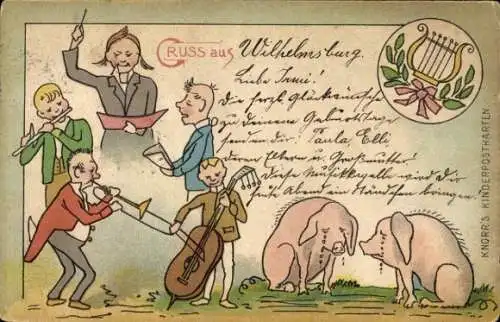 GRUSS aus Wilhelmsburg.
Liebe Irmi!
Die herzl. Glückwünsche
zu deinem Geburtstage
senden dir Paula, Elli,
deren Eltern u. Großmütter!
Diese Musikkapelle wird Dir
heute Abend ein Ständchen bringen.
KNORR'S KINDERPOSTKARTEN